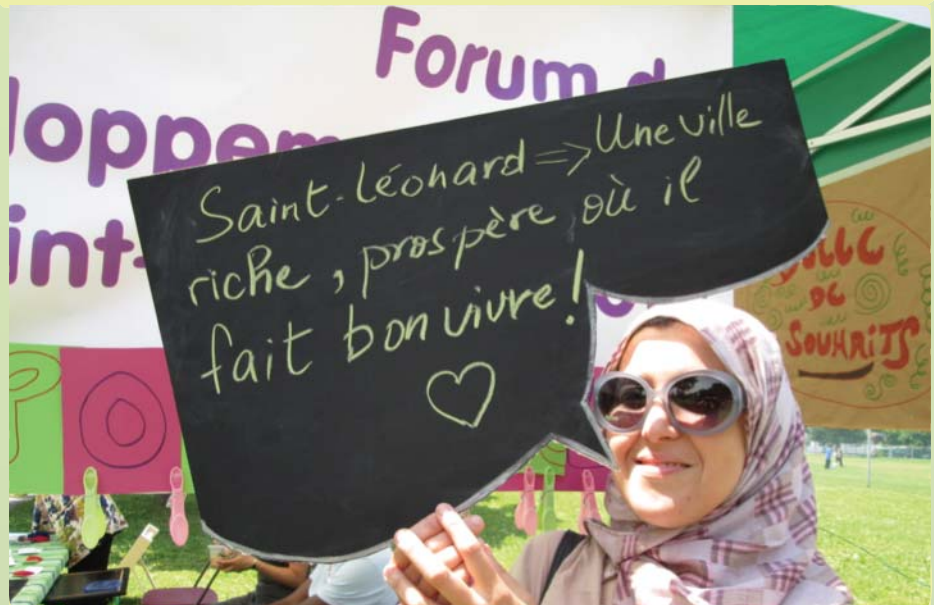 Forum d
loppem
int-
Saint-Léonard => Une ville
riche, prospère où il
fait bon vivre!
DE
SOUHAITS